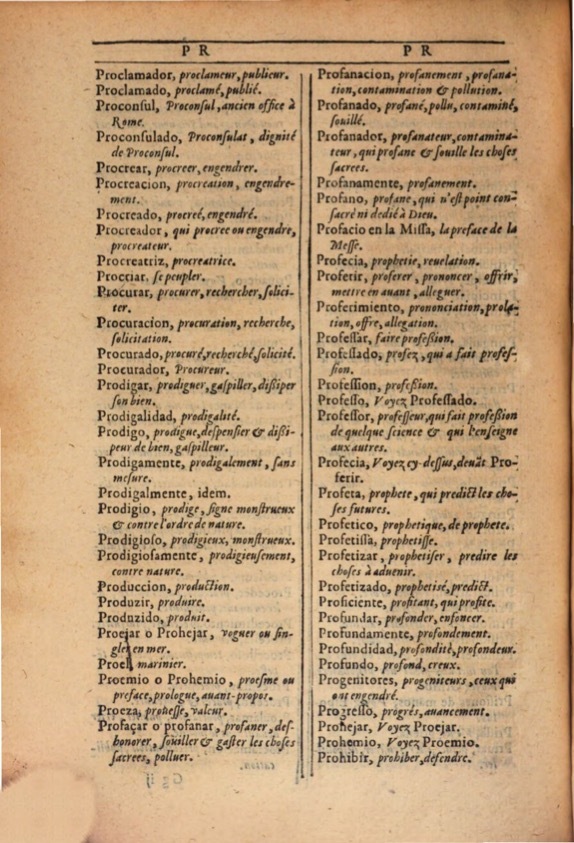 P R
Proclamador, proclameur, publieur.
Proclamado, proclamé, publié.
Proconſul, Proconſul, ancien office à
Rome.
Proconſulado, Proconſulat, dignité
de Proconſul.
Procrear, procreer, engendrer.
Procreacion, procreation, engendre-
ment.
Procreado, procreé, engendré.
Procreador, qui procree ou engendre,
procreateur.
Procreatriz, procreatrice.
Procriar, ſe peupler.
Procurar, procurer, rechercher, ſolici-
ter.
Procuracion, procuration, recherche,
ſolicitation.
Procurado, procuré, recherché, ſolicité.
Procurador, Procureur.
Prodigar, prodiguer, gaſpiller, diſſiper
ſon bien.
Prodigalidad, prodigalité.
Prodigo, prodigue, deſpenſier & diſſi-
peur de bien, gaſpilleur.
Prodigamente, prodigalement, ſans
meſure.
Prodigalmente, idem.
Prodigio, prodige, ſigne monſtrueux
& contre l'ordre de nature.
Prodigioſo, prodigieux, monſtrueux.
Prodigioſamente, prodigieuſement,
contre nature.
Produccion, production.
Produzir, produire.
Produzido, produit.
Proejar o Prohejar, voguer ou ſin-
gler en mer.
Proel, marinier.
Proemio o Prohemio, proeſme ou
preface, prologue, auant-propos.
Proeza, proüeſſe, valeur.
Profaçar o profanar, profaner, deſ-
honorer, ſouiller & gaſter les choſes
ſacrees, polluer.
P R
Profanacion, profanement, profana-
tion, contamination & pollution.
Profanado, profané, pollu, contaminé,
ſouillé.
Profanador, profanateur, contamina-
teur, qui profane & ſouille les choſes
ſacrees.
Profanamente, profanement.
Profano, profane, qui n'eſt point con-
ſacré ni dedié à Dieu.
Profacio en la Miſſa, la preface de la
Meſſe.
Profecia, prophetie, reuelation.
Proferir, proferer, prononcer, offrir,
mettre en auant, alleguer.
Proferimiento, prononciation, prola-
tion, offre, allegation.
Profeſſar, faire profeſſion.
Profeſſado, profez, qui a fait profeſ-
ſion.
Profeſſion, profeſſion.
Profeſſo, Voyez Profeſſado.
Profeſſor, profeſſeur, qui fait profeſſion
de quelque ſcience & qui l'enſeigne
aux autres.
Profecia, Voyez cy-deſſus, deuāt Pro-
ferir.
Profeta, prophete, qui predict les cho-
ſes futures.
Profetico, prophetique, de prophete.
Profetiſſa, prophetiſſe.
Profetizar, prophetiſer, predire les
choſes à aduenir.
Profetizado, prophetisé, predict.
Proficiente, profitant, qui profite.
Profundar, profonder, enfoncer.
Profundamente, profondement.
Profundidad, profondité, profondeur.
Profundo, profond, creux.
Progenitores, progeniteurs, ceux qui
ont engendré.
Progreſſo, progrés, auancement.
Prohejar, Voyez Proejar.
Prohemio, Voyez Proemio.
Prohibir, prohiber, defendre.